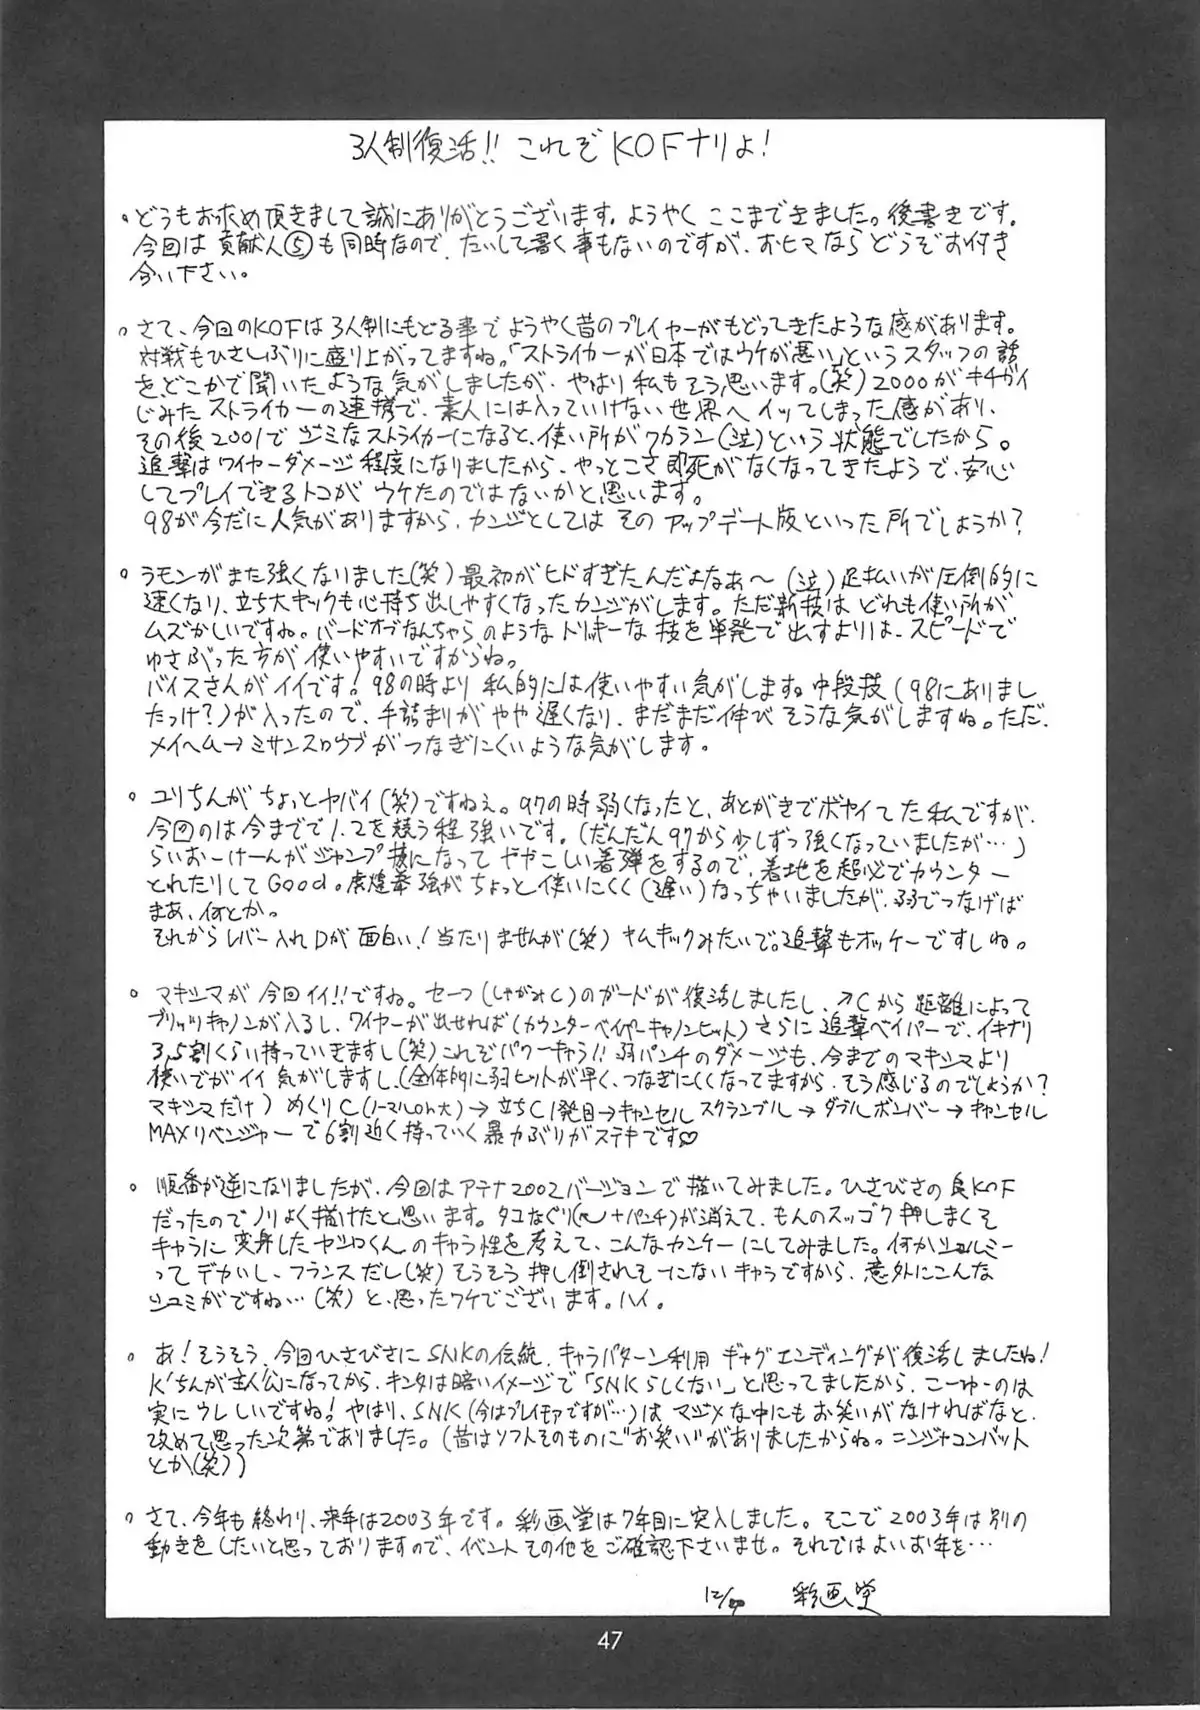 3人制復活!! これぞKOFナリよ!
。どうもお求め頂きまして誠にありがとうございます。ようやく ここまできました。後書きです。
今回は 貢献人⑤も同時なので、たいして書く事もないのですが、おヒマなら どうぞお付き
合い下さい。
。さて、今回のKOFは3人制にもどる事で ようやく昔のプレイヤーがもどってきたような感があります。
対戦もひさしぶりに盛り上がってますね。「ストライカーが日本ではウケが悪い」というスタッフの話
を、どこかで聞いたような気がしましたが、やはり私もそう思います。(笑)2000がキチガイ
じみたストライカーの連携で、素人には入っていけない世界へイッてしまった感があり、
その後2001で ゴミなストライカーになると、使い所がワカラン(泣)という状態でしたから。
追撃はワイヤーダメージ程度になりましたから、やっとこさ即死がなくなってきたようで、安心
してプレイできるトコがウケたのではないかと思います。
98が今だに人気がありますから、カンジとしては そのアップデート版といった所でしょうか?
。ラモンがまた強くなりました(笑)最初がヒドすぎたんだよなぁ～(泣)足払いが圧倒的に
速くなり、立ち大キックも心持ち出しやすくなったカンジがします。ただ新技は どれも使い所が
ムズかしいですね。バードオブなんちゃらのようなトリッキーな技を単発で出すよりは、スピードで
ゆさぶった方が使いやすいですからね。
バイスさんがイイです!98の時より 私的には使いやすい気がします。中段技(98にありまし
たっけ?)が入ったので、手詰まりがやや遅くなり、まだまだ伸びそうな気がしますね。ただ、
メイヘム→ミサンスロウプがつなぎにくいような気がします。
。ユリちんが ちょっとヤバイ(笑)ですねえ。97の時弱くなったと、あとがきでボヤイてた私ですが、
今回のは今までで1.2を競う程強いです。(だんだん97から少しずつ強くなっていましたが…)
らいおーけーんがジャンプ技になって ややこしい着弾をするので、着地を超必でカウンター
とれたりしてGood。虎煌拳強がちょっと使いにくく(遅い)なっちゃいましたが、弱でつなげば
まあ、何とか。
それからレバー入れDが面白い!当たりませんが(笑)キムキックみたいで。追撃もオッケーですしね。
。マキシマが今回イイ!!ですね。セーフ(しゃがみC)のガードが復活しましたし、↗Cから距離によって
ブリッツキャノンが入るし、ワイヤーが出せれば(カウンターベイパーキャノンヒット)さらに追撃ベイパーで、イキナリ
3,5割くらい持っていきますし(笑)これぞパワーキャラ!!弱パンチのダメージも、今までのマキシマより
使いでがイイ気がしますし、(全体的に弱ヒットが早く、つなぎにくくなってますから、そう感じるのでしょうか?
マキシマだけ)めくりC(ノーマルon大)→立ちC1発目→キャンセルスクランブル→ダブルボンバー→キャンセル
MAXリベンジャーで6割近く持っていく暴力ぶりがステキです♡
。順番が逆になりましたが、今回はアテナ2002バージョンで描いてみました。ひさびさの良KOF
だったのでノリよく描けたと思います。タコなぐり(+パンチ)が消えて、もんのスッゴク押しまくる
キャラに変身したヤシロくんのキャラ性を考えて、こんなカンケーにしてみました。何かシェルミー
ってデカいし、フランスだし(笑)そうそう押し倒されそーにないキャラですから、意外にこんな
シュミがですね…(笑)と、思ったワケでございます。ハイ。
。あ!そうそう、今回ひさびさにSNKの伝統、キャラパターン利用ギャグエンディングが復活しましたね!
K'ちんが主人公になってから、キンタは暗いイメージで「SNKらしくない」と思ってましたから、こーゆーのは
実にウレしいですね!やはり、SNK(今はプレイモアですが…)はマジメな中にもお笑いがなければなと、
改めて思った次第でありました。(昔はソフトそのものに"お笑い"がありましたからね。ニンジャコンバット
とか(笑))
。さて、今年も終わり、来年は2003年です。彩画堂は7年目に突入しました。そこで2003年は別の
動きをしたいと思っておりますので、イベントその他をご確認下さいませ。それではよいお年を…
12/ 彩画堂
47